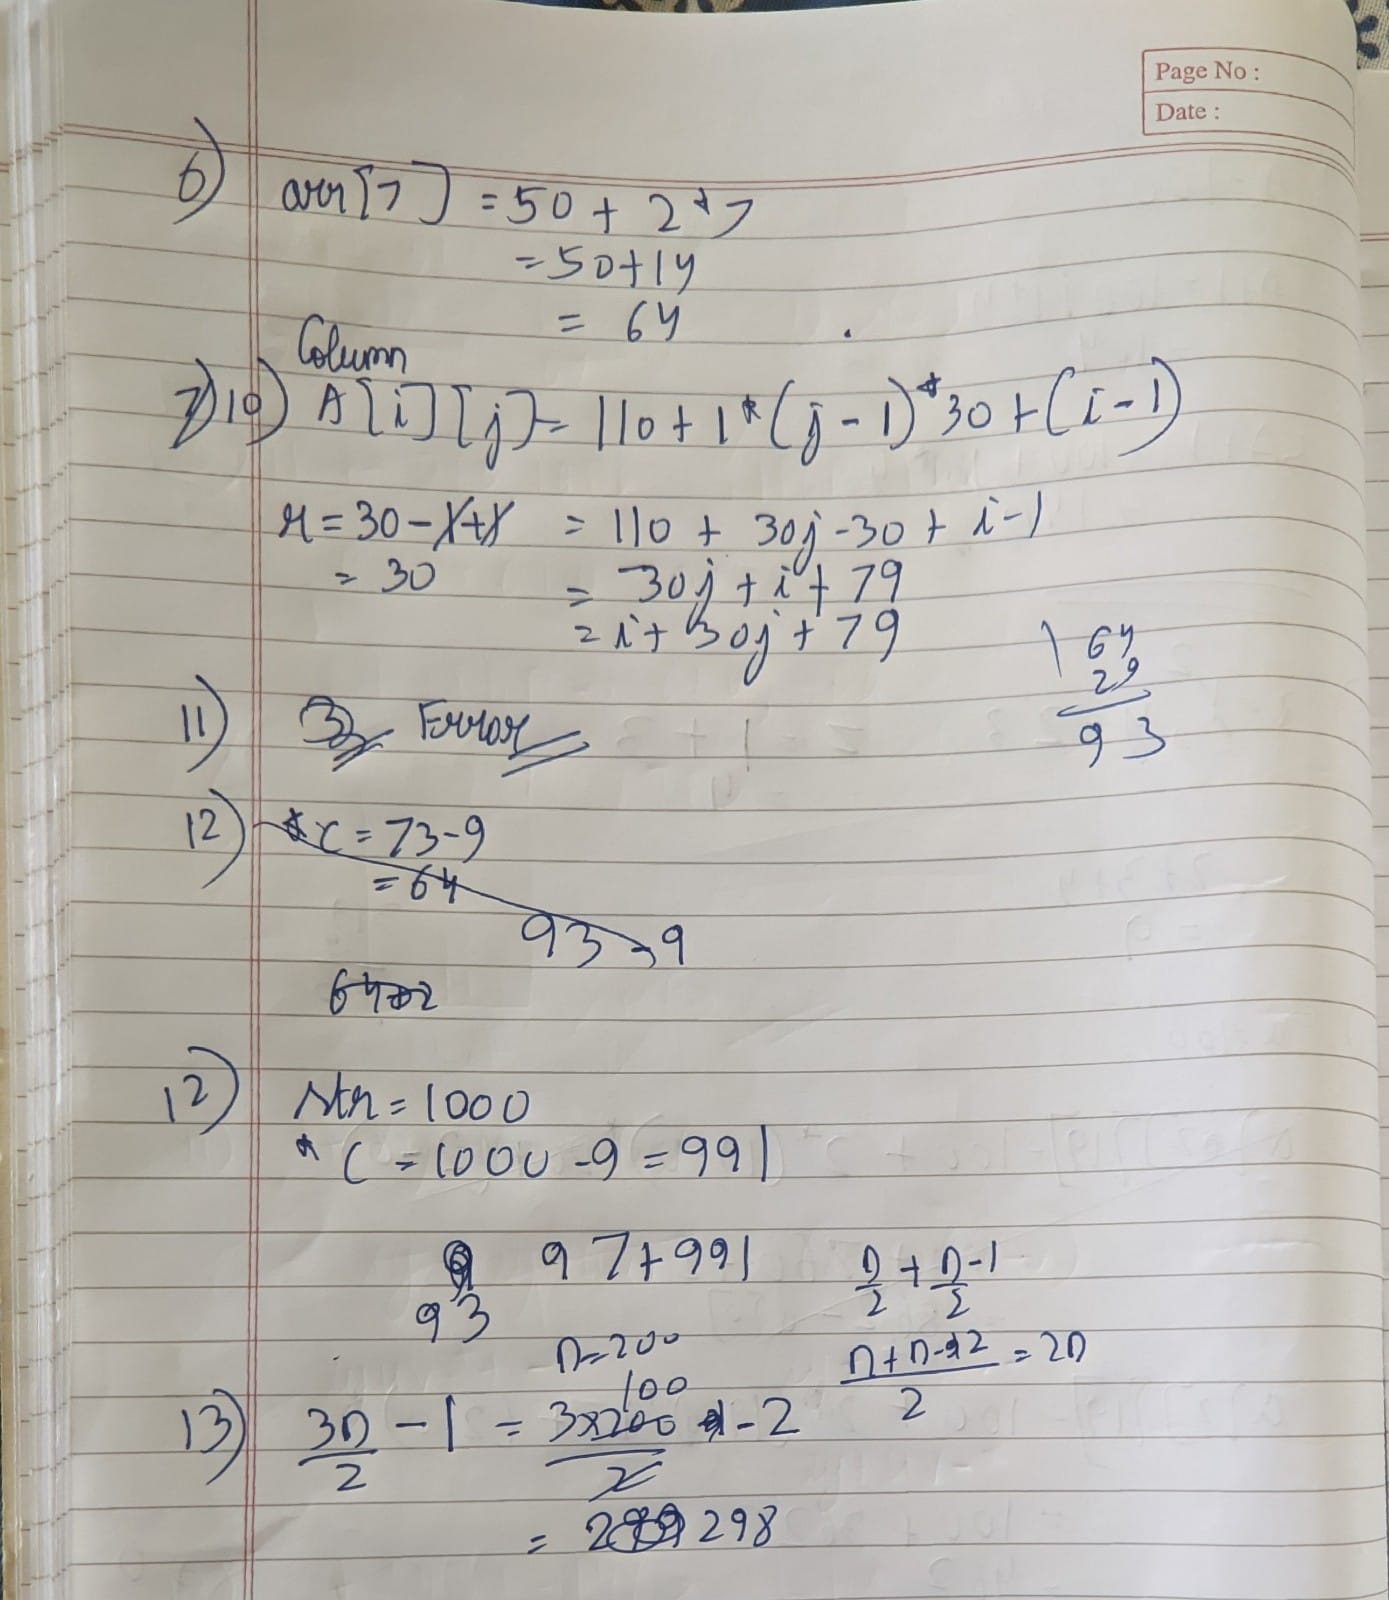 Page No :
Date :
6) arr[7] = 50 + 2*7
= 50+14
= 64
Column
10) A[i][j] = 110 + 1*(j-1)*30 + (i-1)
r = 30-1+1 = 110 + 30j -30 + i-1
= 30 = 30j + i + 79
= i + 30j + 79
64
29
93
11) 3) Error
12) *c = 73-9
= 64
93 - 9
12) str = 1000
*c = 1000 -9 = 991
97+991 n/2 + n-1/2
93
n=200 n+n-2/2 = 2n
100
13) 3n/2 - 1 = 3x200/2 -2
= 298